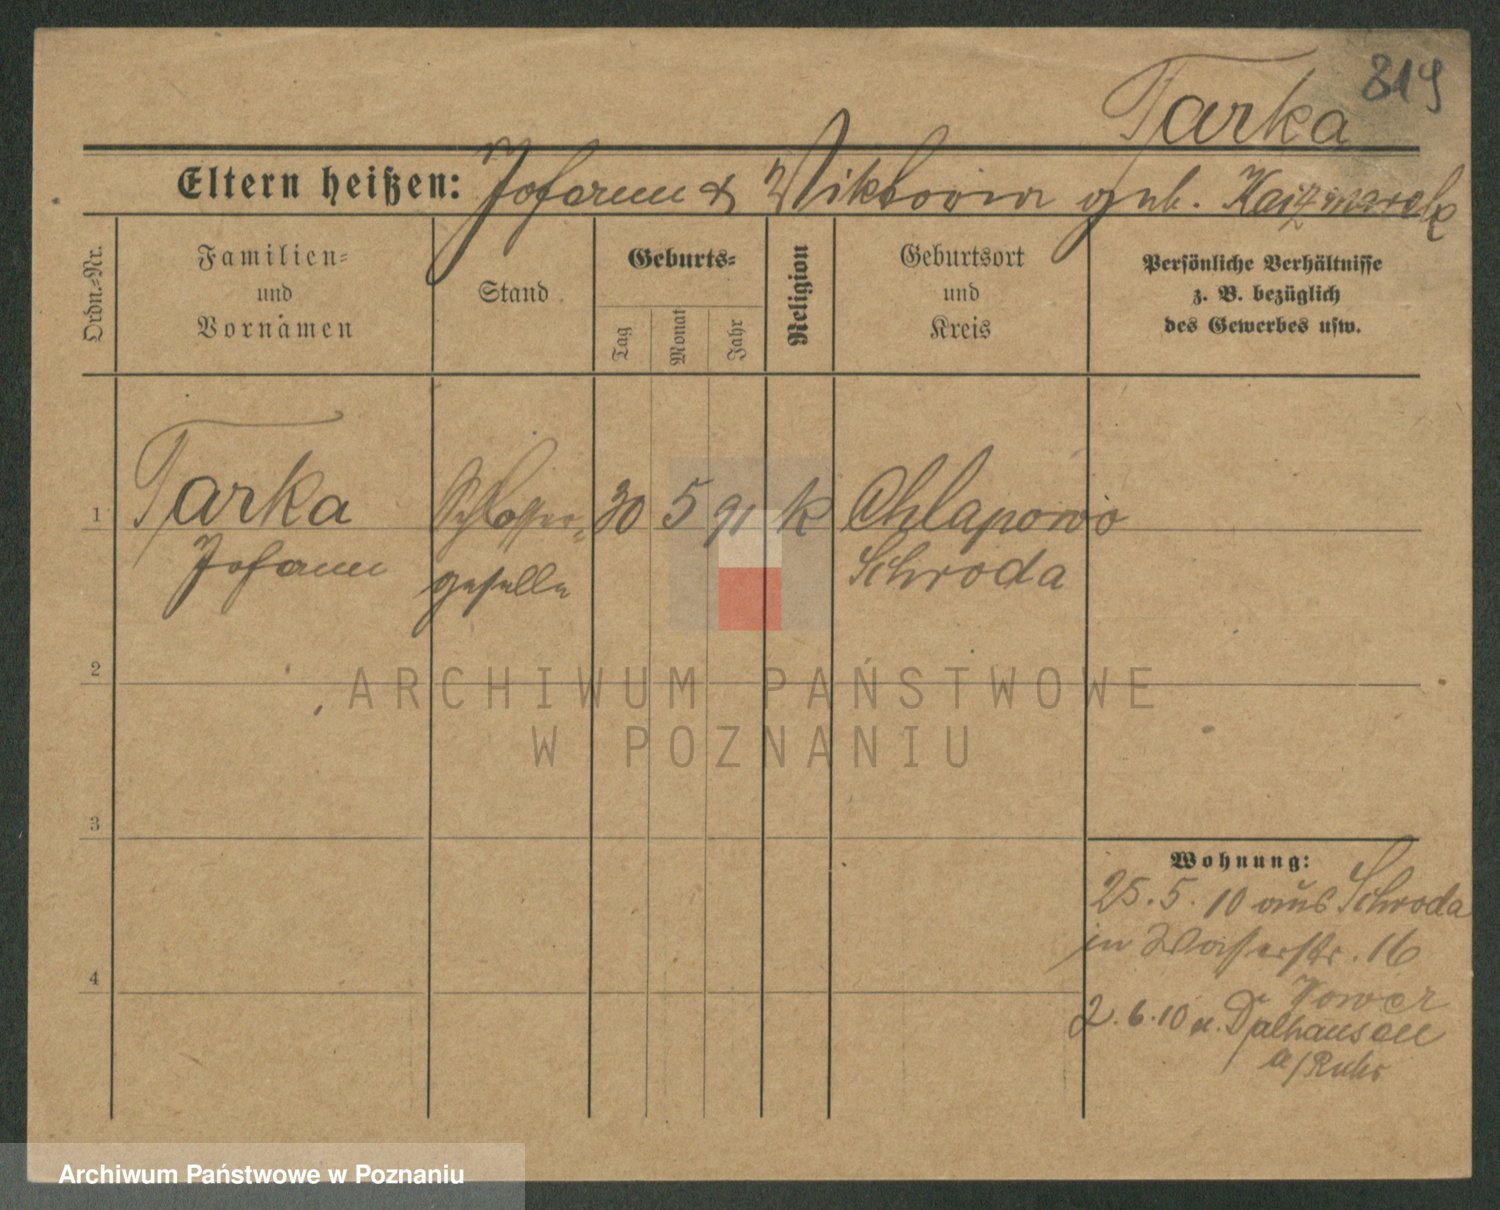 819
Tarka
Eltern heißen: Johann & Viktoria geb. Kaczmarek
Ordn.-Nr.
Familien-
und
Vornamen
Stand
Geburts-
Tag
Monat
Jahr
Religion
Geburtsort
und
Kreis
Persönliche Verhältnisse
z. B. bezüglich
des Gewerbes usw.
1
Tarka
Johann
Schlosser-
geselle
30
5
91
k
Chlapowo
Schroda
2
3
4
Wohnung:
25.5.10 aus Schroda
in Wasserstr. 16
2.6.10 n. Dalhausen
a/Ruhr
ARCHIWUM PAŃSTWOWE
W POZNANIU
Archiwum Państwowe w Poznaniu